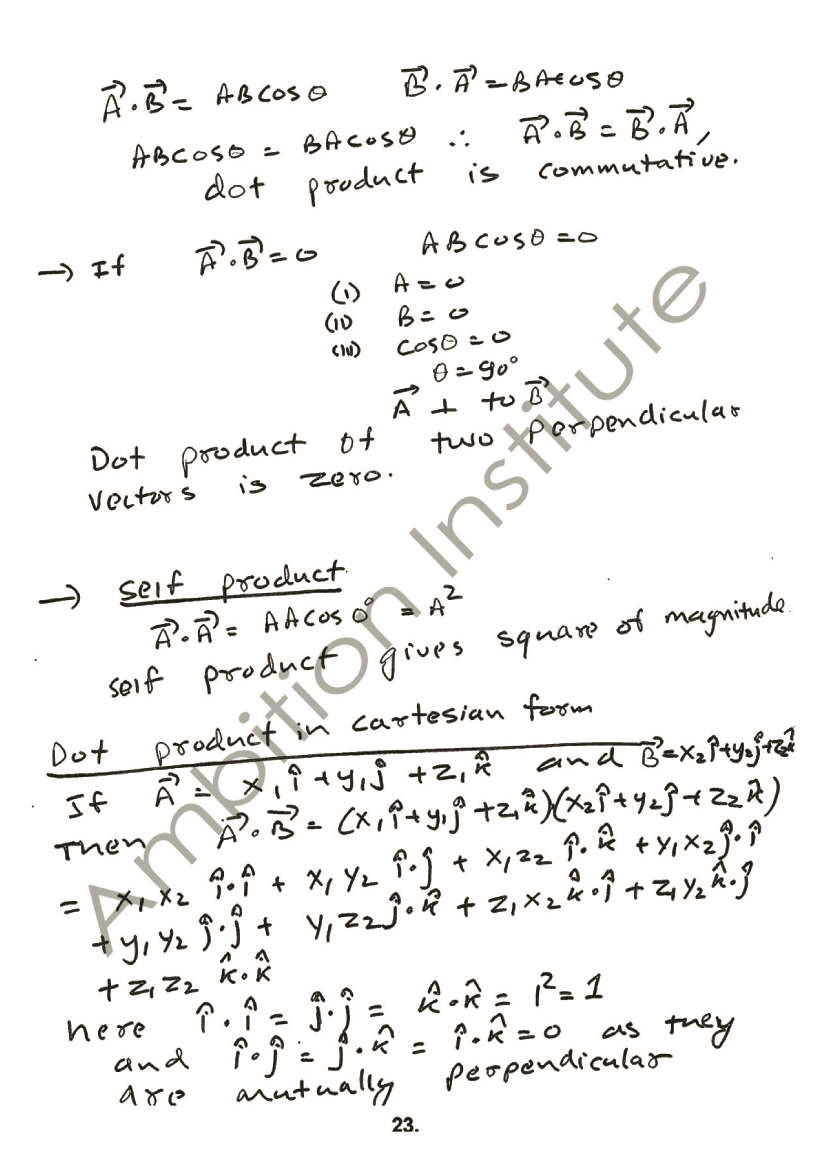 A⃗.B⃗ = ABcosθ   B⃗.A⃗ = BAcosθ
ABcosθ = BAcosθ ∴ A⃗.B⃗ = B⃗.A⃗,
dot product is commutative.
→ If A⃗.B⃗ = 0   ABcosθ = 0
(i) A = 0
(ii) B = 0
(iii) cosθ = 0
θ = 90°
A⃗ ⊥ to B⃗
Dot product of two perpendicular
vectors is zero.
→ self product
A⃗.A⃗ = AAcos0° = A²
self product gives square of magnitude.
Dot product in cartesian form
If A⃗ = x₁î + y₁ĵ + z₁k̂ and B⃗ = x₂î + y₂ĵ + z₂k̂
Then A⃗.B⃗ = (x₁î + y₁ĵ + z₁k̂)(x₂î + y₂ĵ + z₂k̂)
= x₁x₂ î.î + x₁y₂ î.ĵ + x₁z₂ î.k̂ + y₁x₂ ĵ.î
+ y₁y₂ ĵ.ĵ + y₁z₂ ĵ.k̂ + z₁x₂ k̂.î + z₁y₂ k̂.ĵ
+ z₁z₂ k̂.k̂
here î.î = ĵ.ĵ = k̂.k̂ = 1² = 1
and î.ĵ = ĵ.k̂ = î.k̂ = 0 as they
are mutually perpendicular
23.
Ambition Institute